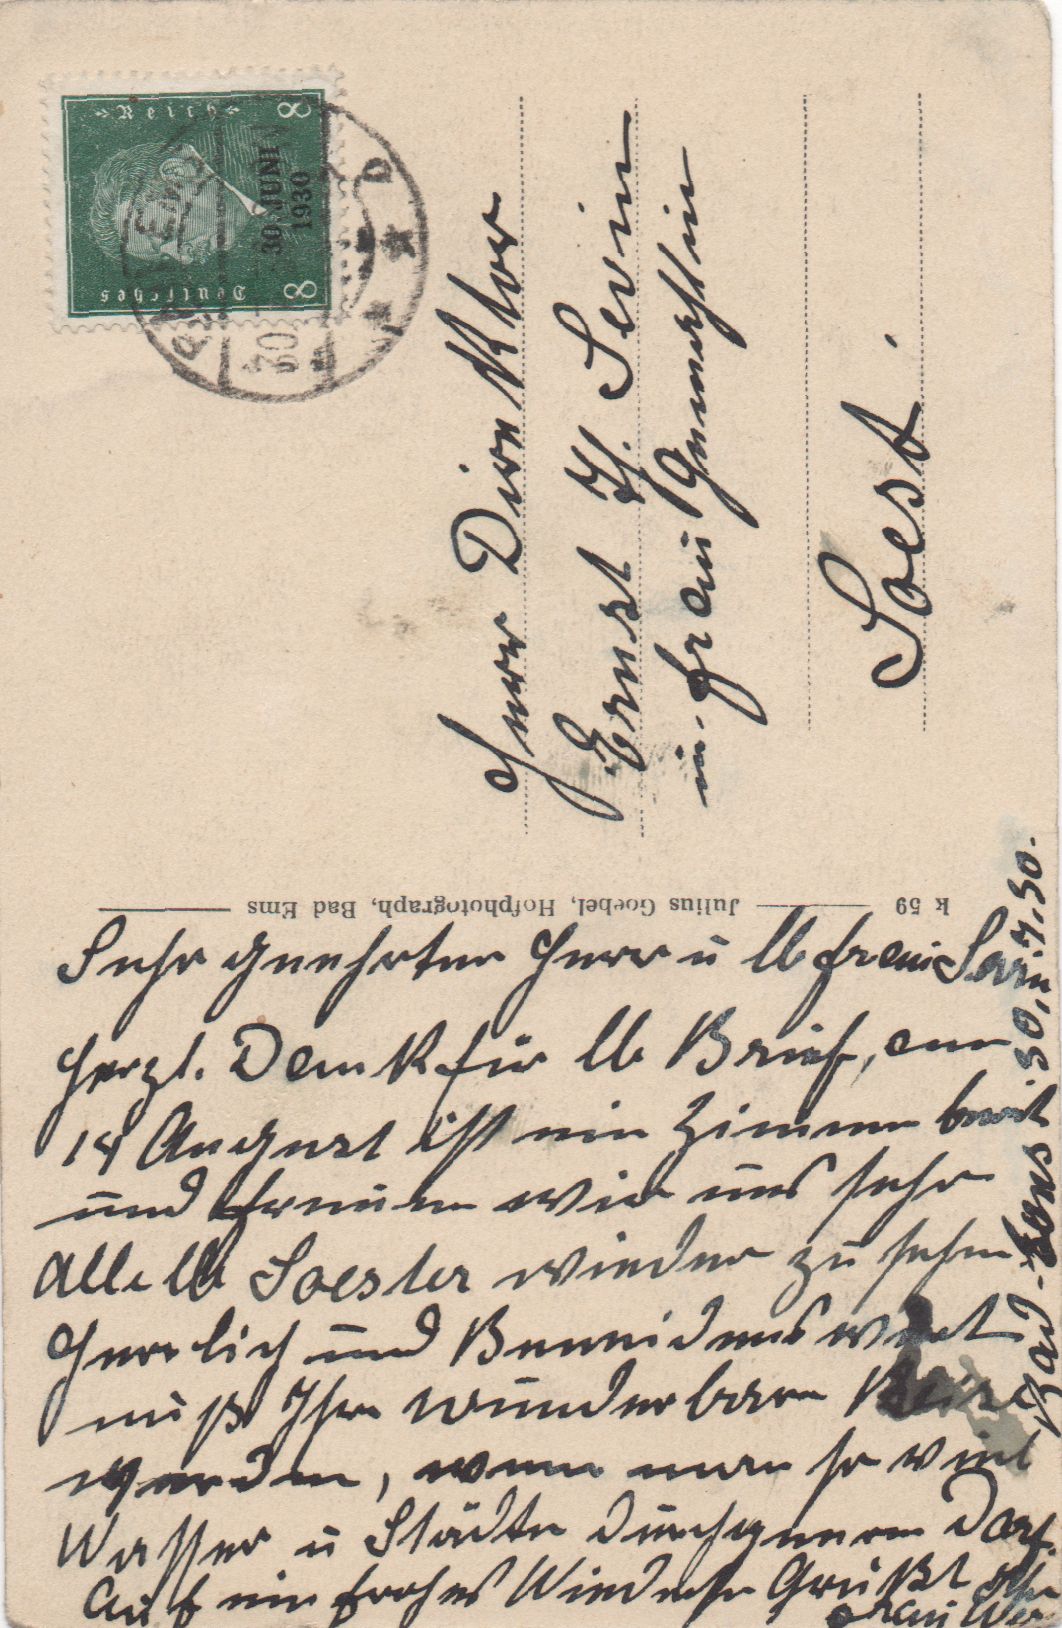 Deutsches Reich
8 8
30. JUNI 1930
Herr Direktor
Ernst Th. Sevin
u. Frau Gemahlin
Soest.
k 59 Julius Goebel, Hofphotograph, Bad Ems
Bad-Ems 30.7.30.
Sehr geehrter Herr u lb Frau Sevin
Herzl. Dank für lb Brief, am
14 August ist ein Zimmer bereit
und freuen wir uns sehr
alle lb Soester wieder zu sehen
Herrlich und Beneidenswert
muß Ihre wunderbare Reise
werden, wenn man so viel
Wasser u Städte durchqueren darf.
Auf ein frohes Wiedersehn Grüßt
Frau